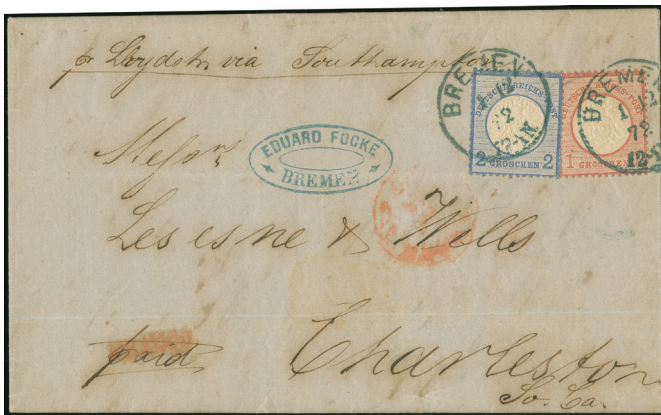 pr Lloydstr. via Southampton
BREMEN
72
12-1N
DEUTSCHE REICHS-POST
2 GROSCHEN 2
DEUTSCHE REICHS-POST
1 GROSCHEN
BREMEN
1
72
12-1N
EDUARD FOCKE
BREMEN
Messrs
Lesesne & Wells
paid
Charleston
So. Ca.